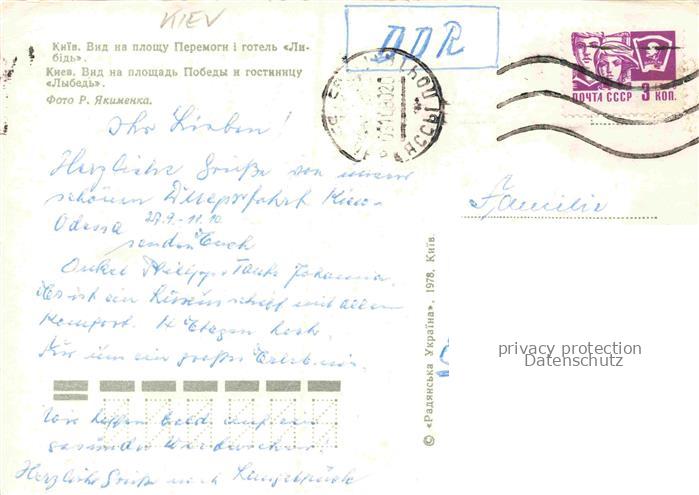 KIEV
DDR
Київ. Вид на площу Перемоги і готель «Ли-
бідь».
Киев. Вид на площадь Победы и гостиницу
«Лыбедь».
Фото Р. Якименка.
ПОЧТА СССР 3 КОП.
Ihr Lieben!
Herzliche Grüße von unserer
schönen Dneperfahrt Kiew-
Odessa 27.9.-11.10.
senden Euch
Onkel Philipp + Tante Johanna.
Es ist ein Luxusschiff mit allem
Komfort. 4 Etagen hoch.
Für uns ein großes Erlebnis.
Wir hoffen bald auf ein
gesundes Wiedersehen!
Herzliche Grüße nach
Familie
© «Радянська Україна», 1978, Київ.
privacy protection
Datenschutz